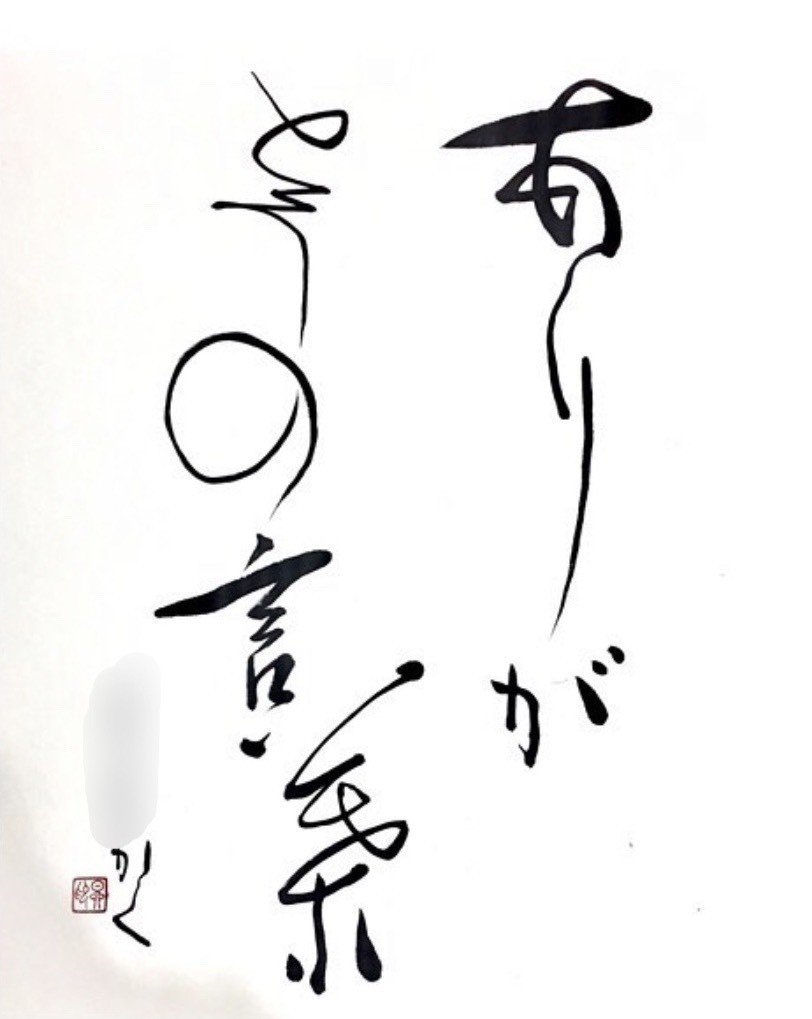 ありが
とうの言葉
かく